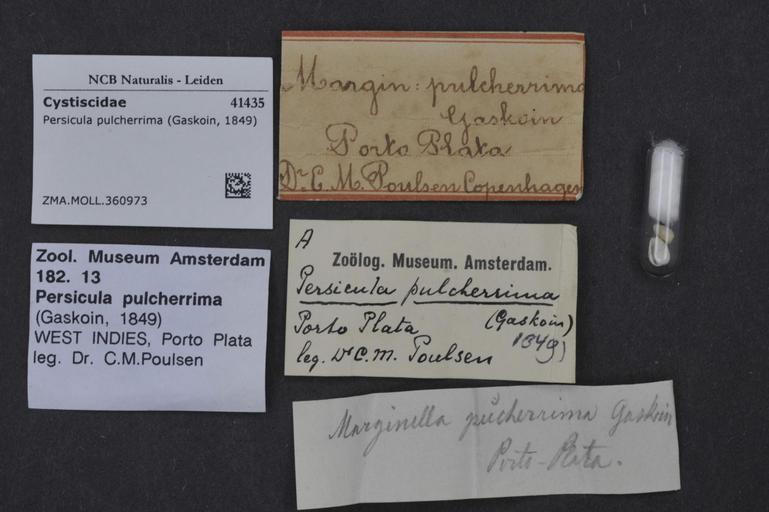 NCB Naturalis - Leiden
Cystiscidae 41435
Persicula pulcherrima (Gaskoin, 1849)
ZMA.MOLL.360973
Margin: pulcherrima
Gaskoin
Porto Plata
Dr. C. M. Poulsen Copenhagen
Zool. Museum Amsterdam
182. 13
Persicula pulcherrima
(Gaskoin, 1849)
WEST INDIES, Porto Plata
leg. Dr. C.M.Poulsen
A
Zoölog. Museum. Amsterdam.
Persicula pulcherrima
Porto Plata (Gaskoin)
1849)
leg. Dr C. M. Poulsen
Marginella pulcherrima Gaskoin
Porto-Plata.